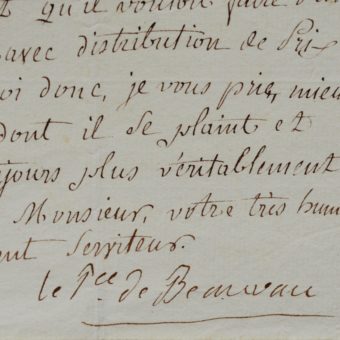 qu'il vouloit faire
avec distribution de Pri
oi donc, je vous prie, mieu
dont il se plaint et
ujours plus véritablement
Monsieur, votre très hum
ent serviteur.
le P.ce de Beauvau